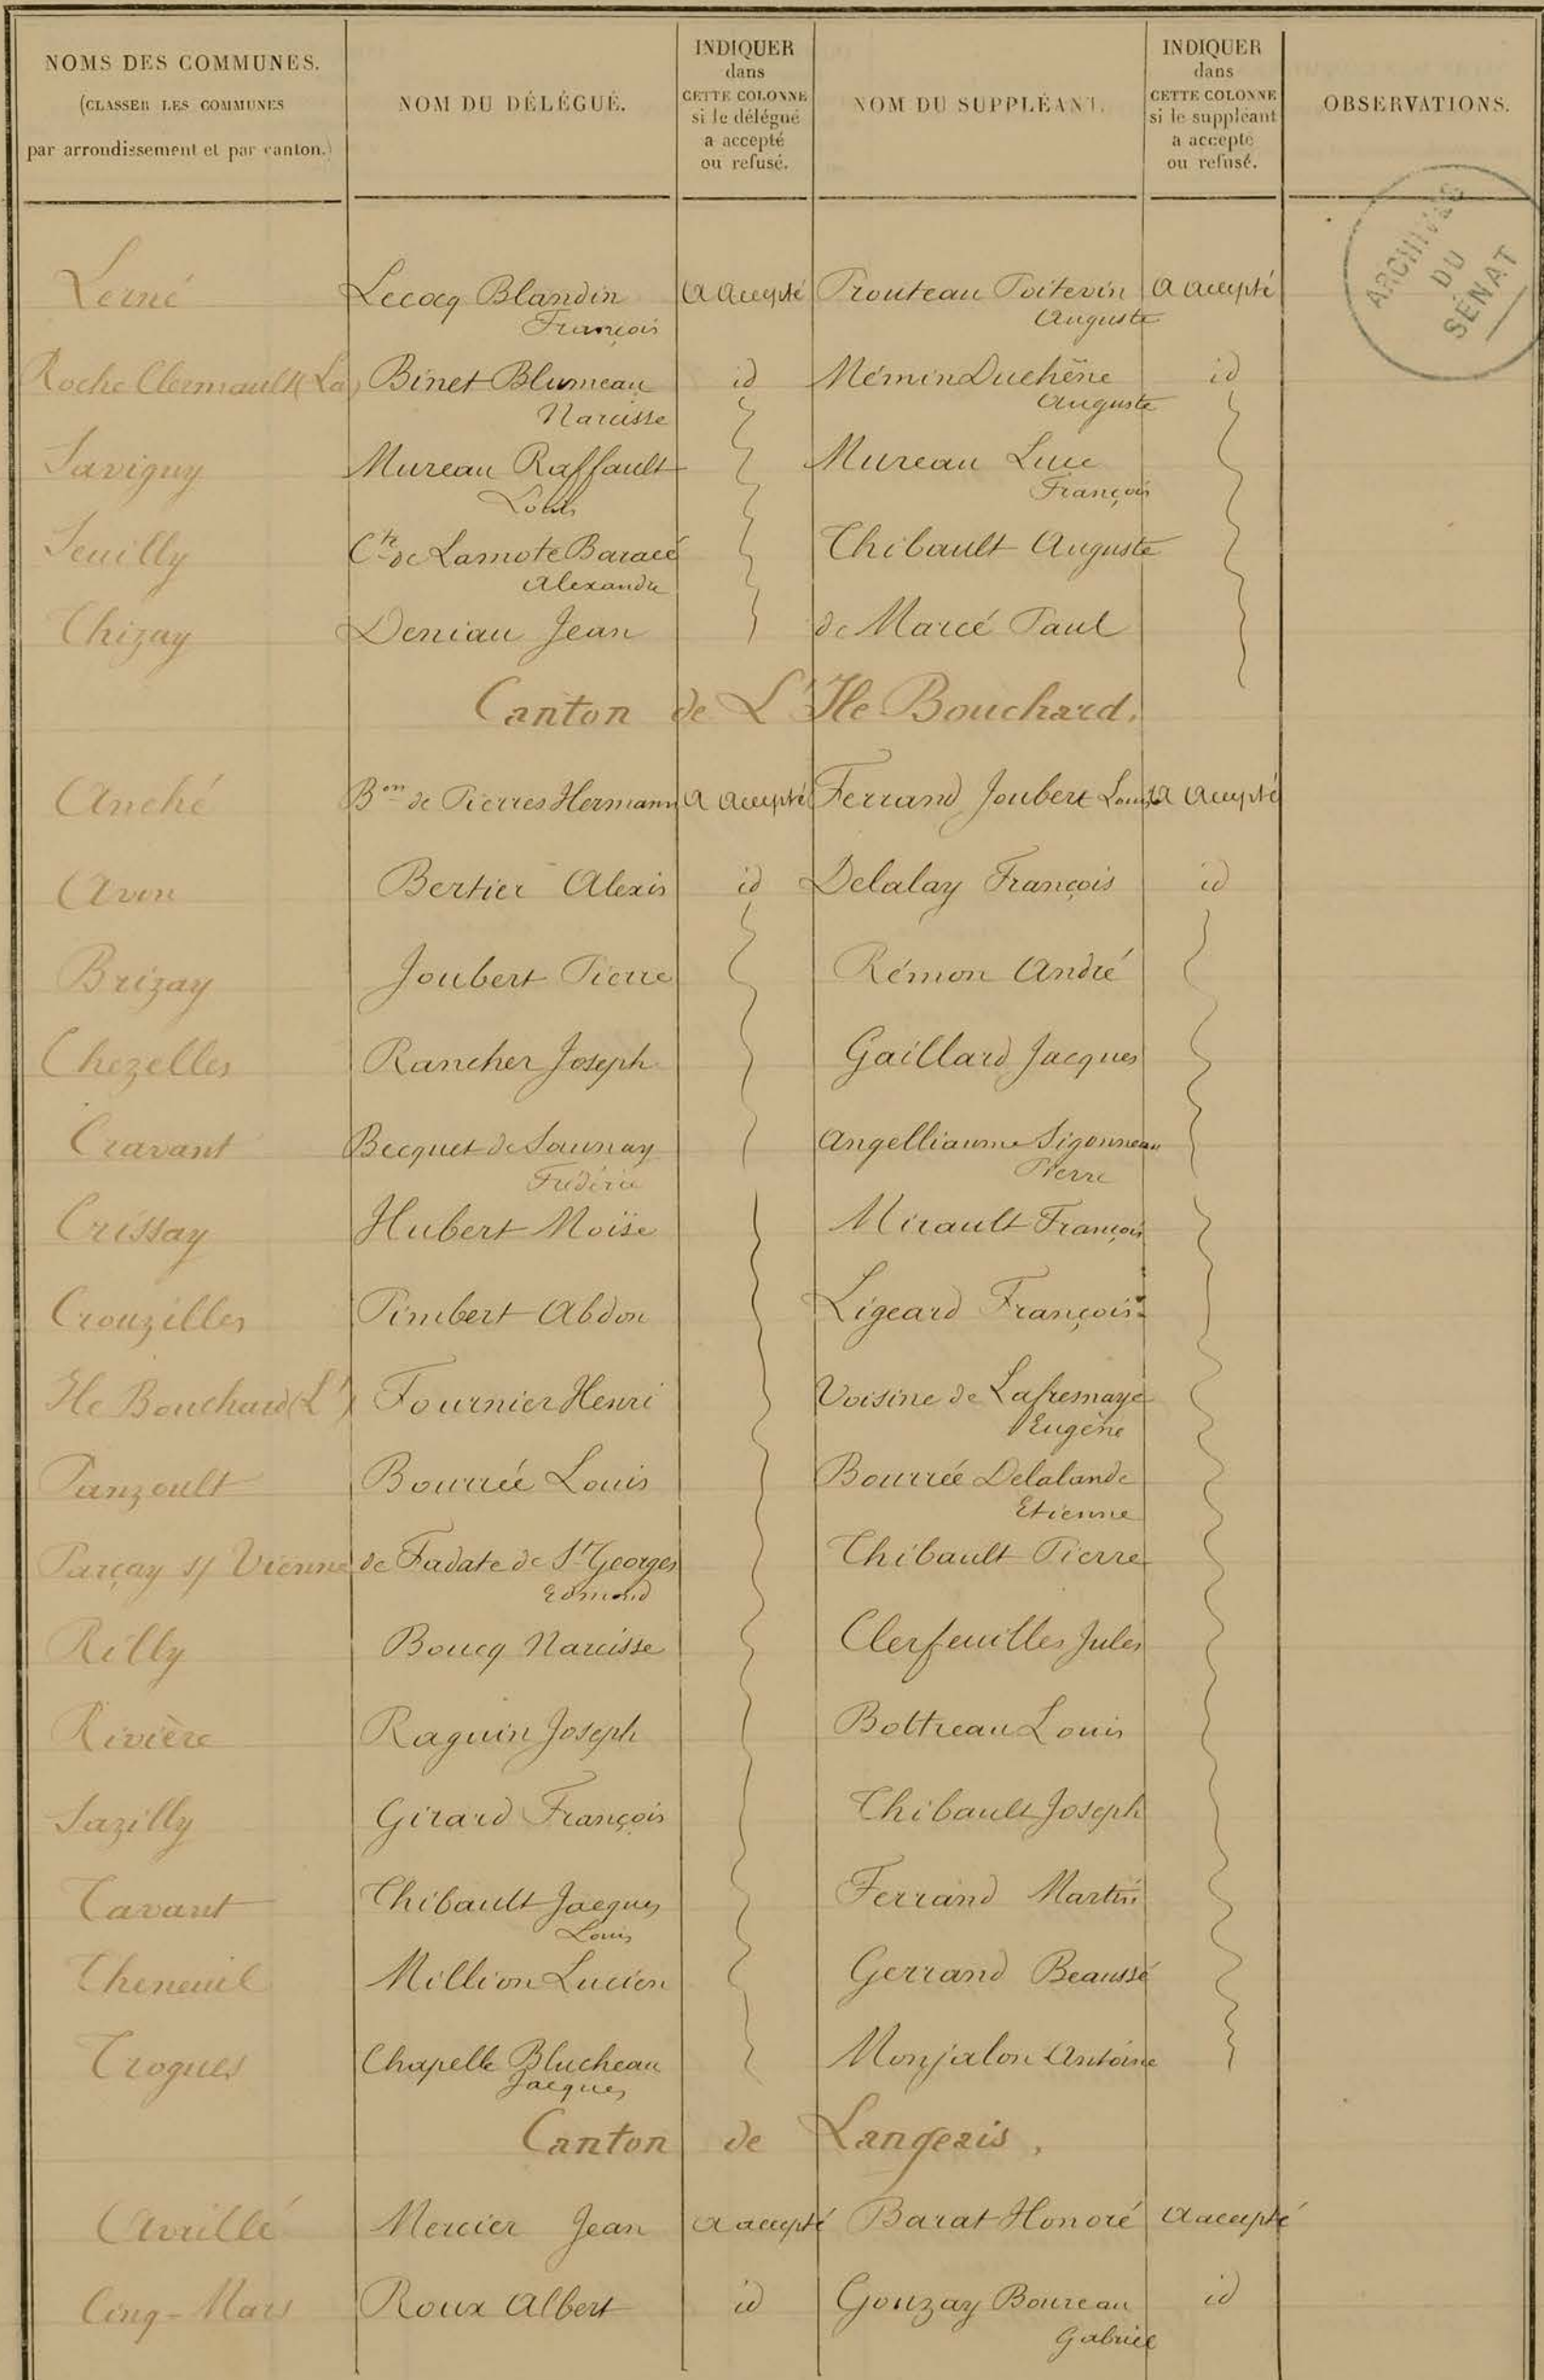 NOMS DES COMMUNES.
(CLASSER LES COMMUNES
par arrondissement et par canton.)
NOM DU DÉLÉGUÉ.
INDIQUER
dans
CETTE COLONNE
si le délégué
a accepté
ou refusé.
NOM DU SUPPLÉANT.
INDIQUER
dans
CETTE COLONNE
si le suppléant
a accepté
ou refusé.
OBSERVATIONS.
ARCHIVES
DU
SÉNAT
Lerné Lecocq Blandin a accepté Prouteau Poitevin a accepté
François Auguste
Roche Clermault (La) Binet Blumeau id Mémin Duchêne id
Narcisse Auguste
Savigny Mureau Raffault Mureau Luce
Louis François
Seuilly Cte de Lamote Baracé Thibault Auguste
Alexandre
Thizay Deniau Jean de Marcé Paul
Canton de L'Ile Bouchard.
Anché Bon de Pierres Hermann a accepté Ferrand Joubert Louis a accepté
Avon Bertier Alexis id Delalay François id
Brizay Joubert Pierre Rémon André
Chezelles Rancher Joseph Gaillard Jacques
Cravant Becquet de Saunay Angelliaume Sigonneau
Frédéric Pierre
Crissay Hubert Moïse Mirault François
Crouzilles Pimbert Abdon Ligeard François
Ile Bouchard (L') Fournier Henri Voisine de Lafresnaye
Eugène
Panzoult Bourrée Louis Bourrée Delalande
Etienne
Parçay s/ Vienne de Fadate de St Georges Thibault Pierre
Edmond
Rilly Boucq Narcisse Clerfeuilles Jules
Rivière Raguin Joseph Bottreau Louis
Sazilly Girard François Thibault Joseph
Tavant Thibault Jacques Ferrand Martin
Louis
Theneuil Million Lucien Gerrand Beaussé
Trogues Chapelle Blucheau Monjalon Antoine
Jacques
Canton de Langeais,
Avrillé Mercier Jean a accepté Barat Honoré a accepté
Cinq-Mars Roux Albert id Gouzay Boureau id
Gabriel